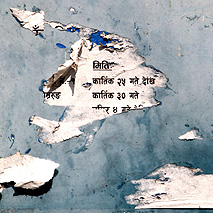 मिति
कार्तिक २५ गते देखि
कार्तिक ३० गते
४ गते